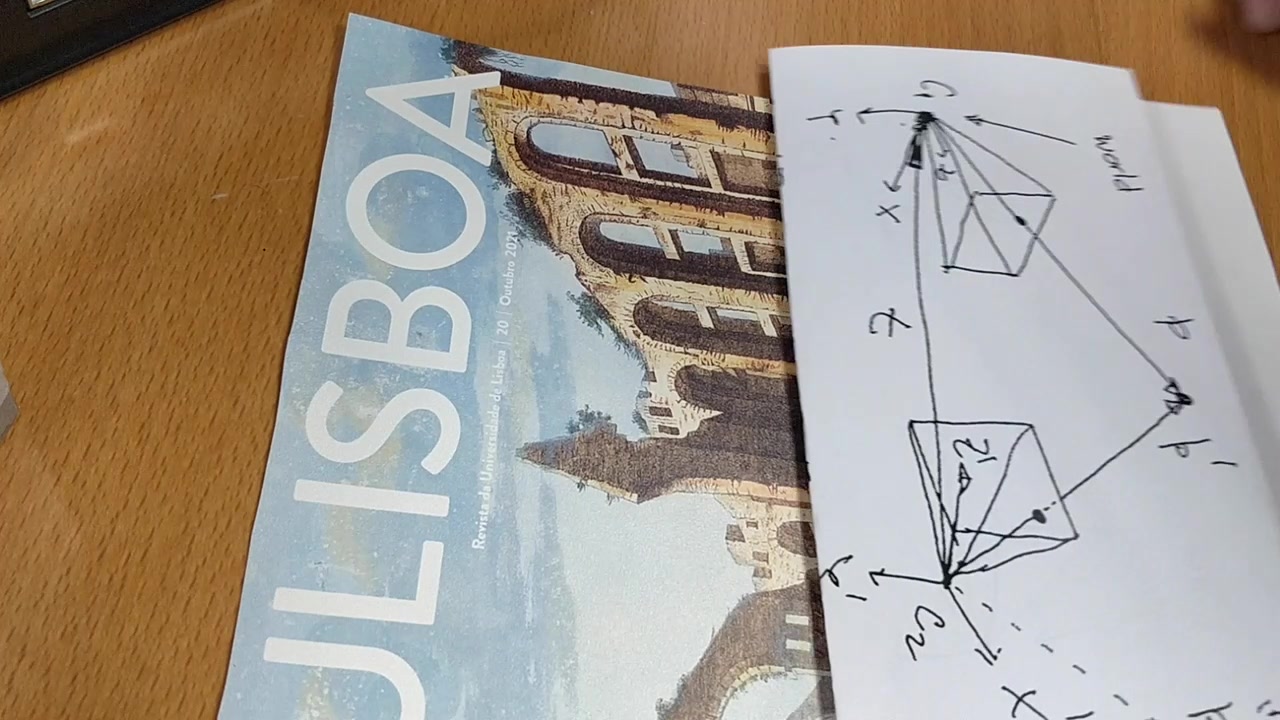 ULISBOA
Revista da Universidade de Lisboa | 20 | Outubro 2021
C1
world
x
z
P
P'
z'
C2
x